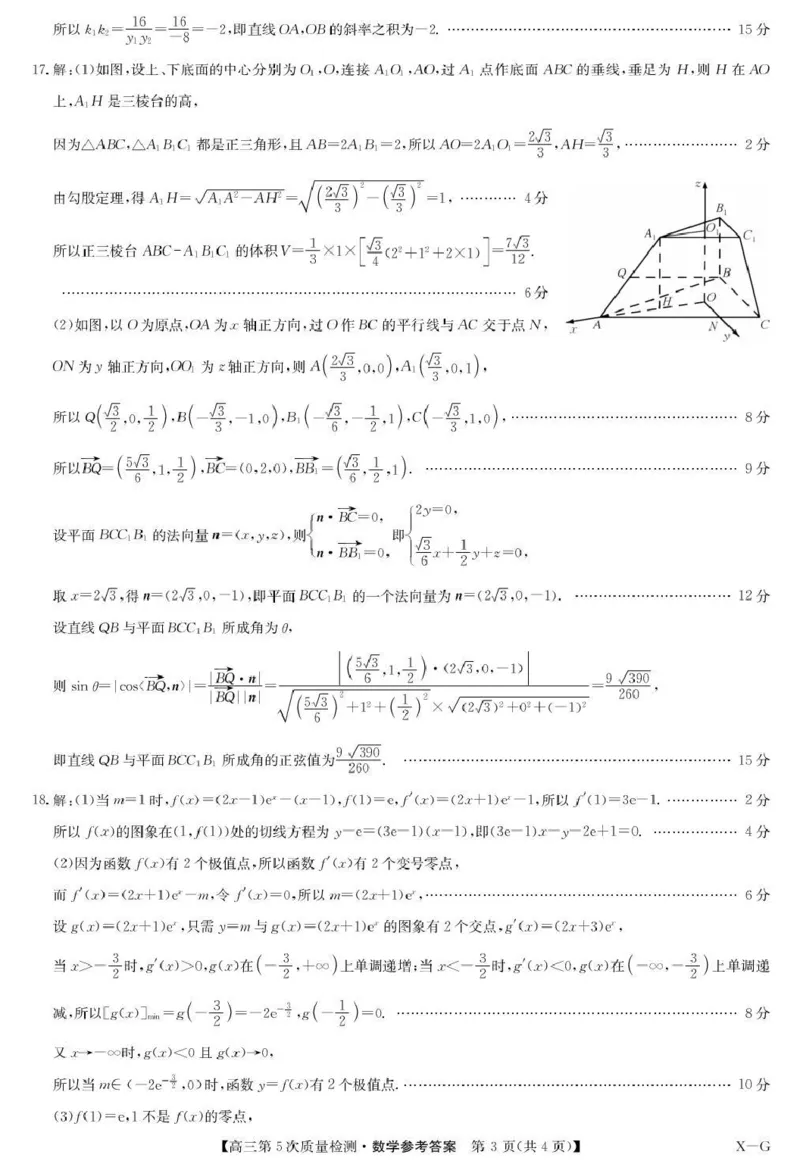 所以 k₁k₂=16/y₁y₂=16/-8=-2,即直线 OA,OB 的斜率之积为-2. …… 15 分
17. 解:(1)如图,设上、下底面的中心分别为 O₁,O,连接 A₁O₁,AO,过 A₁ 点作底面 ABC 的垂线,垂足为 H,则 H 在 AO
上,A₁H 是三棱台的高,
因为△ABC,△A₁B₁C₁ 都是正三角形,且 AB=2A₁B₁=2,所以 AO=2A₁O₁=2√3/3,AH=√3/3, …… 2 分
由勾股定理,得 A₁H=√(A₁A²-AH²)=√((2√3/3)²-(√3/3)²)=1, …… 4 分
所以正三棱台 ABC-A₁B₁C₁ 的体积 V=1/3×1×[√3/4(2²+1²+2×1)]=7√3/12.
…… 6 分
z
B₁
A₁
O₁
C₁
Q
B
H
O
x
A
N
C
y
(2)如图,以 O 为原点,OA 为 x 轴正方向,过 O 作 BC 的平行线与 AC 交于点 N,
ON 为 y 轴正方向,OO₁ 为 z 轴正方向,则 A(2√3/3,0,0),A₁(√3/3,0,1),
所以 Q(√3/2,0,1/2),B(-√3/3,-1,0),B₁(-√3/6,-1/2,1),C(-√3/3,1,0), …… 8 分
所以 BQ→=(5√3/6,1,1/2),BC→=(0,2,0),BB₁→=(√3/6,1/2,1). …… 9 分
设平面 BCC₁B₁ 的法向量 n=(x,y,z),则{n·BC→=0, n·BB₁→=0, 即{2y=0, √3/6x+1/2y+z=0,
取 x=2√3,得 n=(2√3,0,-1),即平面 BCC₁B₁ 的一个法向量为 n=(2√3,0,-1). …… 12 分
设直线 QB 与平面 BCC₁B₁ 所成角为 θ,
则 sin θ=|cos⟨BQ→,n⟩|=|BQ→·n|/|BQ→||n|=|(5√3/6,1,1/2)·(2√3,0,-1)|/(√((5√3/6)²+1²+(1/2)²)×√((2√3)²+0²+(-1)²))=9√390/260,
即直线 QB 与平面 BCC₁B₁ 所成角的正弦值为9√390/260. …… 15 分
18. 解:(1)当 m=1 时,f(x)=(2x-1)eˣ-(x-1),f(1)=e,f′(x)=(2x+1)eˣ-1,所以 f′(1)=3e-1. …… 2 分
所以 f(x)的图象在(1,f(1))处的切线方程为 y-e=(3e-1)(x-1),即(3e-1)x-y-2e+1=0. …… 4 分
(2)因为函数 f(x)有 2 个极值点,所以函数 f′(x)有 2 个变号零点,
而 f′(x)=(2x+1)eˣ-m,令 f′(x)=0,所以 m=(2x+1)eˣ, …… 6 分
设 g(x)=(2x+1)eˣ,只需 y=m 与 g(x)=(2x+1)eˣ 的图象有 2 个交点,g′(x)=(2x+3)eˣ,
当 x>-3/2时,g′(x)>0,g(x)在(-3/2,+∞)上单调递增;当 x<-3/2时,g′(x)<0,g(x)在(-∞,-3/2)上单调递
减,所以[g(x)]min=g(-3/2)=-2e^(-3/2),g(-1/2)=0. …… 8 分
又 x→-∞时,g(x)<0 且 g(x)→0,
所以当 m∈(-2e^(-3/2),0)时,函数 y=f(x)有 2 个极值点. …… 10 分
(3)f(1)=e,1 不是 f(x)的零点,
【高三第 5 次质量检测·数学参考答案 第 3 页(共 4 页)】 X-G